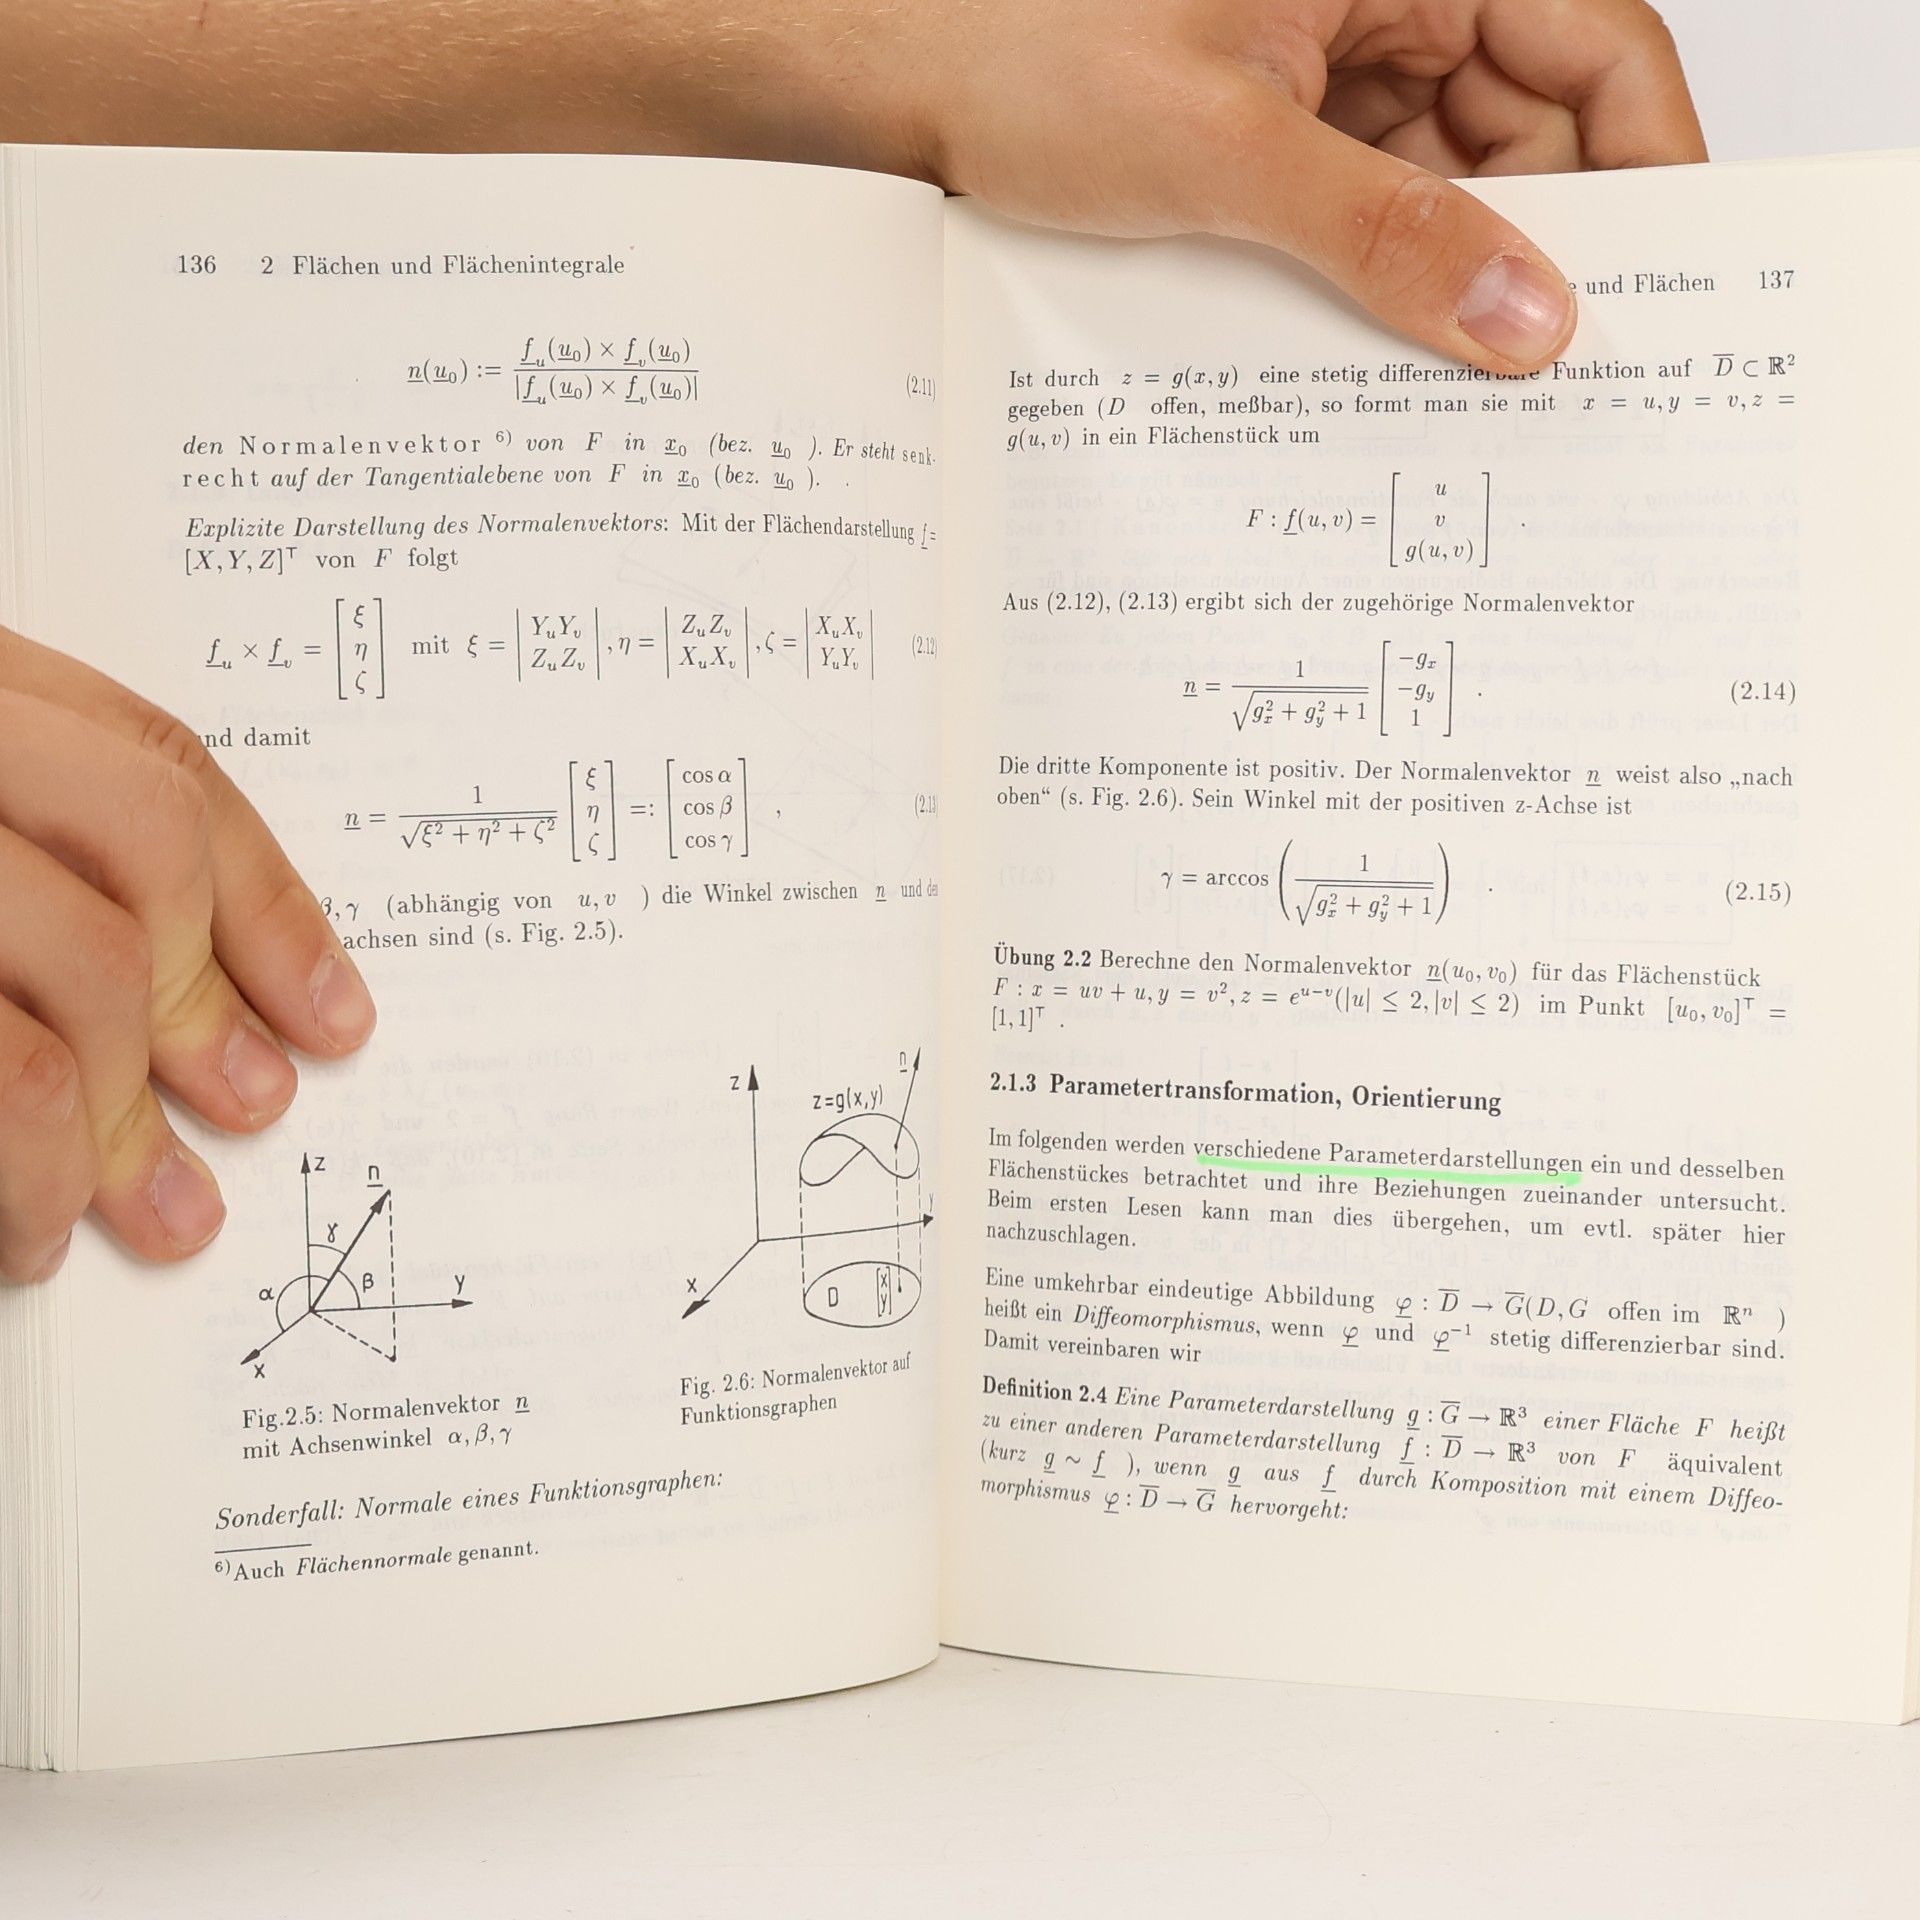 136 2 Flächen und Flächenintegrale
n(u₀) := f_u(u₀) × f_v(u₀) / |f_u(u₀) × f_v(u₀)| (2.11)
den Normalenvektor ⁶⁾ von F in x₀ (bez. u₀ ). Er steht senk-
recht auf der Tangentialebene von F in x₀ (bez. u₀ ).
Explizite Darstellung des Normalenvektors: Mit der Flächendarstellung f =
[X, Y, Z]ᵀ von F folgt
f_u × f_v = [ξ η ζ] mit ξ = |Y_u Y_v Z_u Z_v|, η = |Z_u Z_v X_u X_v|, ζ = |X_u X_v Y_u Y_v| (2.12)
und damit
n = 1/√(ξ² + η² + ζ²) [ξ η ζ] =: [cos α cos β cos γ] , (2.13)
β, γ (abhängig von u, v ) die Winkel zwischen n und den
achsen sind (s. Fig. 2.5).
z n γ α β y x
Fig.2.5: Normalenvektor n
mit Achsenwinkel α, β, γ
z n z=g(x,y) y x D [x y]
Fig. 2.6: Normalenvektor auf
Funktionsgraphen
Sonderfall: Normale eines Funktionsgraphen:
⁶⁾Auch Flächennormale genannt.
und Flächen 137
Ist durch z = g(x, y) eine stetig differenzierbare Funktion auf D̅ ⊂ ℝ²
gegeben (D offen, meßbar), so formt man sie mit x = u, y = v, z =
g(u, v) in ein Flächenstück um
F : f(u, v) = [u v g(u, v)] .
Aus (2.12), (2.13) ergibt sich der zugehörige Normalenvektor
n = 1/√(g_x² + g_y² + 1) [−g_x −g_y 1] . (2.14)
Die dritte Komponente ist positiv. Der Normalenvektor n weist also „nach
oben“ (s. Fig. 2.6). Sein Winkel mit der positiven z-Achse ist
γ = arccos (1/√(g_x² + g_y² + 1)) . (2.15)
Übung 2.2 Berechne den Normalenvektor n(u₀, v₀) für das Flächenstück
F : x = uv + u, y = v², z = e^{u−v}(|u| ≤ 2, |v| ≤ 2) im Punkt [u₀, v₀]ᵀ =
[1, 1]ᵀ .
2.1.3 Parametertransformation, Orientierung
Im folgenden werden verschiedene Parameterdarstellungen ein und desselben
Flächenstückes betrachtet und ihre Beziehungen zueinander untersucht.
Beim ersten Lesen kann man dies übergehen, um evtl. später hier
nachzuschlagen.
Eine umkehrbar eindeutige Abbildung φ : D̅ → G̅(D, G offen im ℝⁿ )
heißt ein Diffeomorphismus, wenn φ und φ⁻¹ stetig differenzierbar sind.
Damit vereinbaren wir
Definition 2.4 Eine Parameterdarstellung g : G̅ → ℝ³ einer Fläche F heißt
zu einer anderen Parameterdarstellung f : D̅ → ℝ³ von F äquivalent
(kurz g ~ f ), wenn g aus f durch Komposition mit einem Diffeo-
morphismus φ : D̅ → G̅ hervorgeht: